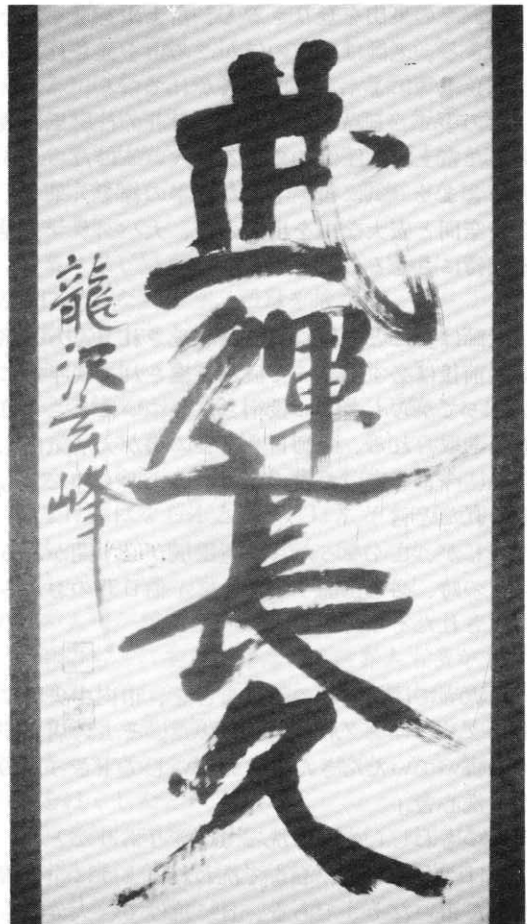 武運長久
龍沢玄峰